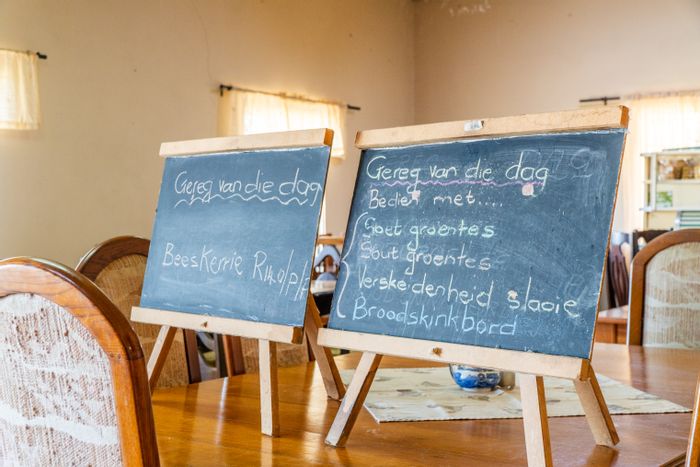 Gereg van die dag
Beeskerrie R140/p/p
Gereg van die dag
Bedien met....
Soet groentes
Sout groentes
Verskeidenheid slaaie
Broodskinkbord